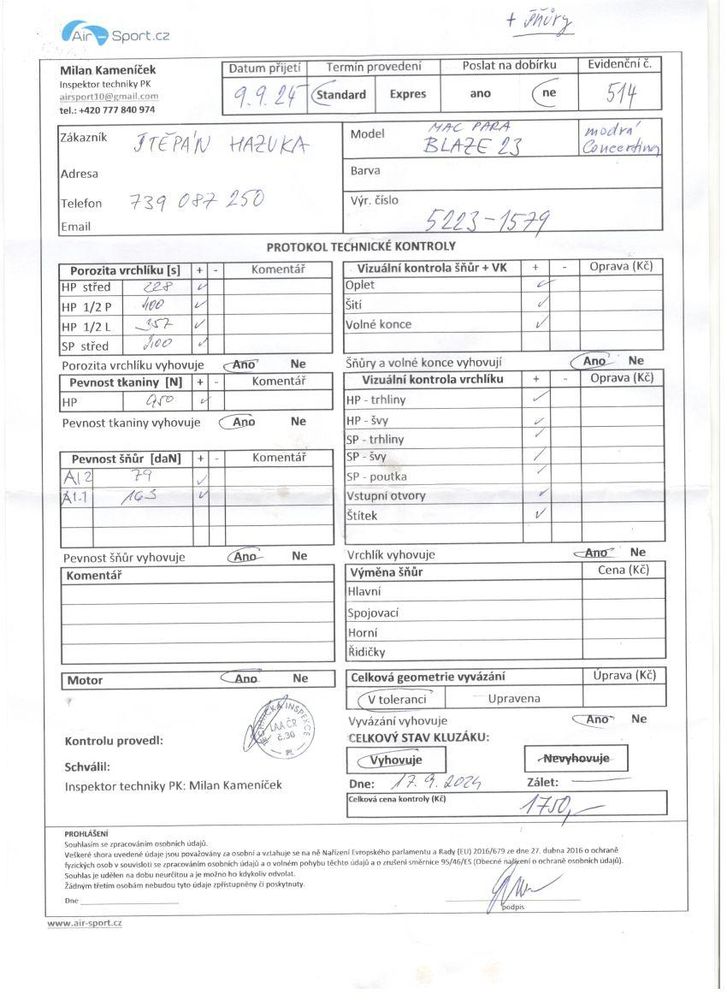 + šňůry
Air-Sport.cz
Milan Kameníček
Inspektor techniky PK
airsport10@gmail.com
tel.: +420 777 840 974
Datum přijetí Termín provedení Poslat na dobírku Evidenční č.
9.9.24 Standard Expres ano ne 514
Zákazník ŠTĚPÁN HAZUKA
Adresa
Telefon 739 087 250
Email
Model MAC PARA
BLAZE 23
modrá
Concertina
Barva
Výr. číslo
5223-1579
PROTOKOL TECHNICKÉ KONTROLY
Porozita vrchlíku [s] + - Komentář
HP střed 228 ✓
HP 1/2 P 400 ✓
HP 1/2 L 357 ✓
SP střed ✓
Porozita vrchlíku vyhovuje Ano Ne
Pevnost tkaniny [N] + - Komentář
HP 950 ✓
Pevnost tkaniny vyhovuje Ano Ne
Pevnost šňůr [daN] + - Komentář
A12 79 ✓
A1.1 163 ✓
Pevnost šňůr vyhovuje Ano Ne
Komentář
Motor Ano Ne
Vizuální kontrola šňůr + VK + - Oprava (Kč)
Oplet ✓
Šití ✓
Volné konce ✓
Šňůry a volné konce vyhovují Ano Ne
Vizuální kontrola vrchlíku + - Oprava (Kč)
HP - trhliny ✓
HP - švy ✓
SP - trhliny ✓
SP - švy ✓
SP - poutka ✓
Vstupní otvory ✓
Štítek ✓
Vrchlík vyhovuje Ano Ne
Výměna šňůr Cena (Kč)
Hlavní
Spojovací
Horní
Řidičky
Celková geometrie vyvázání Úprava (Kč)
V toleranci Upravena
Vyvázání vyhovuje Ano Ne
CELKOVÝ STAV KLUZÁKU:
Vyhovuje Nevyhovuje
Dne: 17.9.2024 Zálet:
Celková cena kontroly (Kč) 1750,-
TECHNICKÁ INSPEKCE
LAA ČR
č.30
PL
Kontrolu provedl:
Schválil:
Inspektor techniky PK: Milan Kameníček
PROHLÁŠENÍ
Souhlasím se zpracováním osobních údajů.
Veškeré shora uvedené údaje jsou považovány za osobní a vztahuje se na ně Nařízení Evropského parlamentu a Rady (EU) 2016/679 ze dne 27. dubna 2016 o ochraně
fyzických osob v souvisloti se zpracováním osobních údajů a o volném pohybu těchto údajů a o zrušení směrnice 95/46/ES (Obecné nařízení o ochraně osobních údajů).
Souhlas je udělen na dobu neurčitou a je možno ho kdykoliv odvolat.
Žádným třetím osobám nebudou tyto údaje zpřístupněny či poskytnuty.
Dne
podpis
www.air-sport.cz